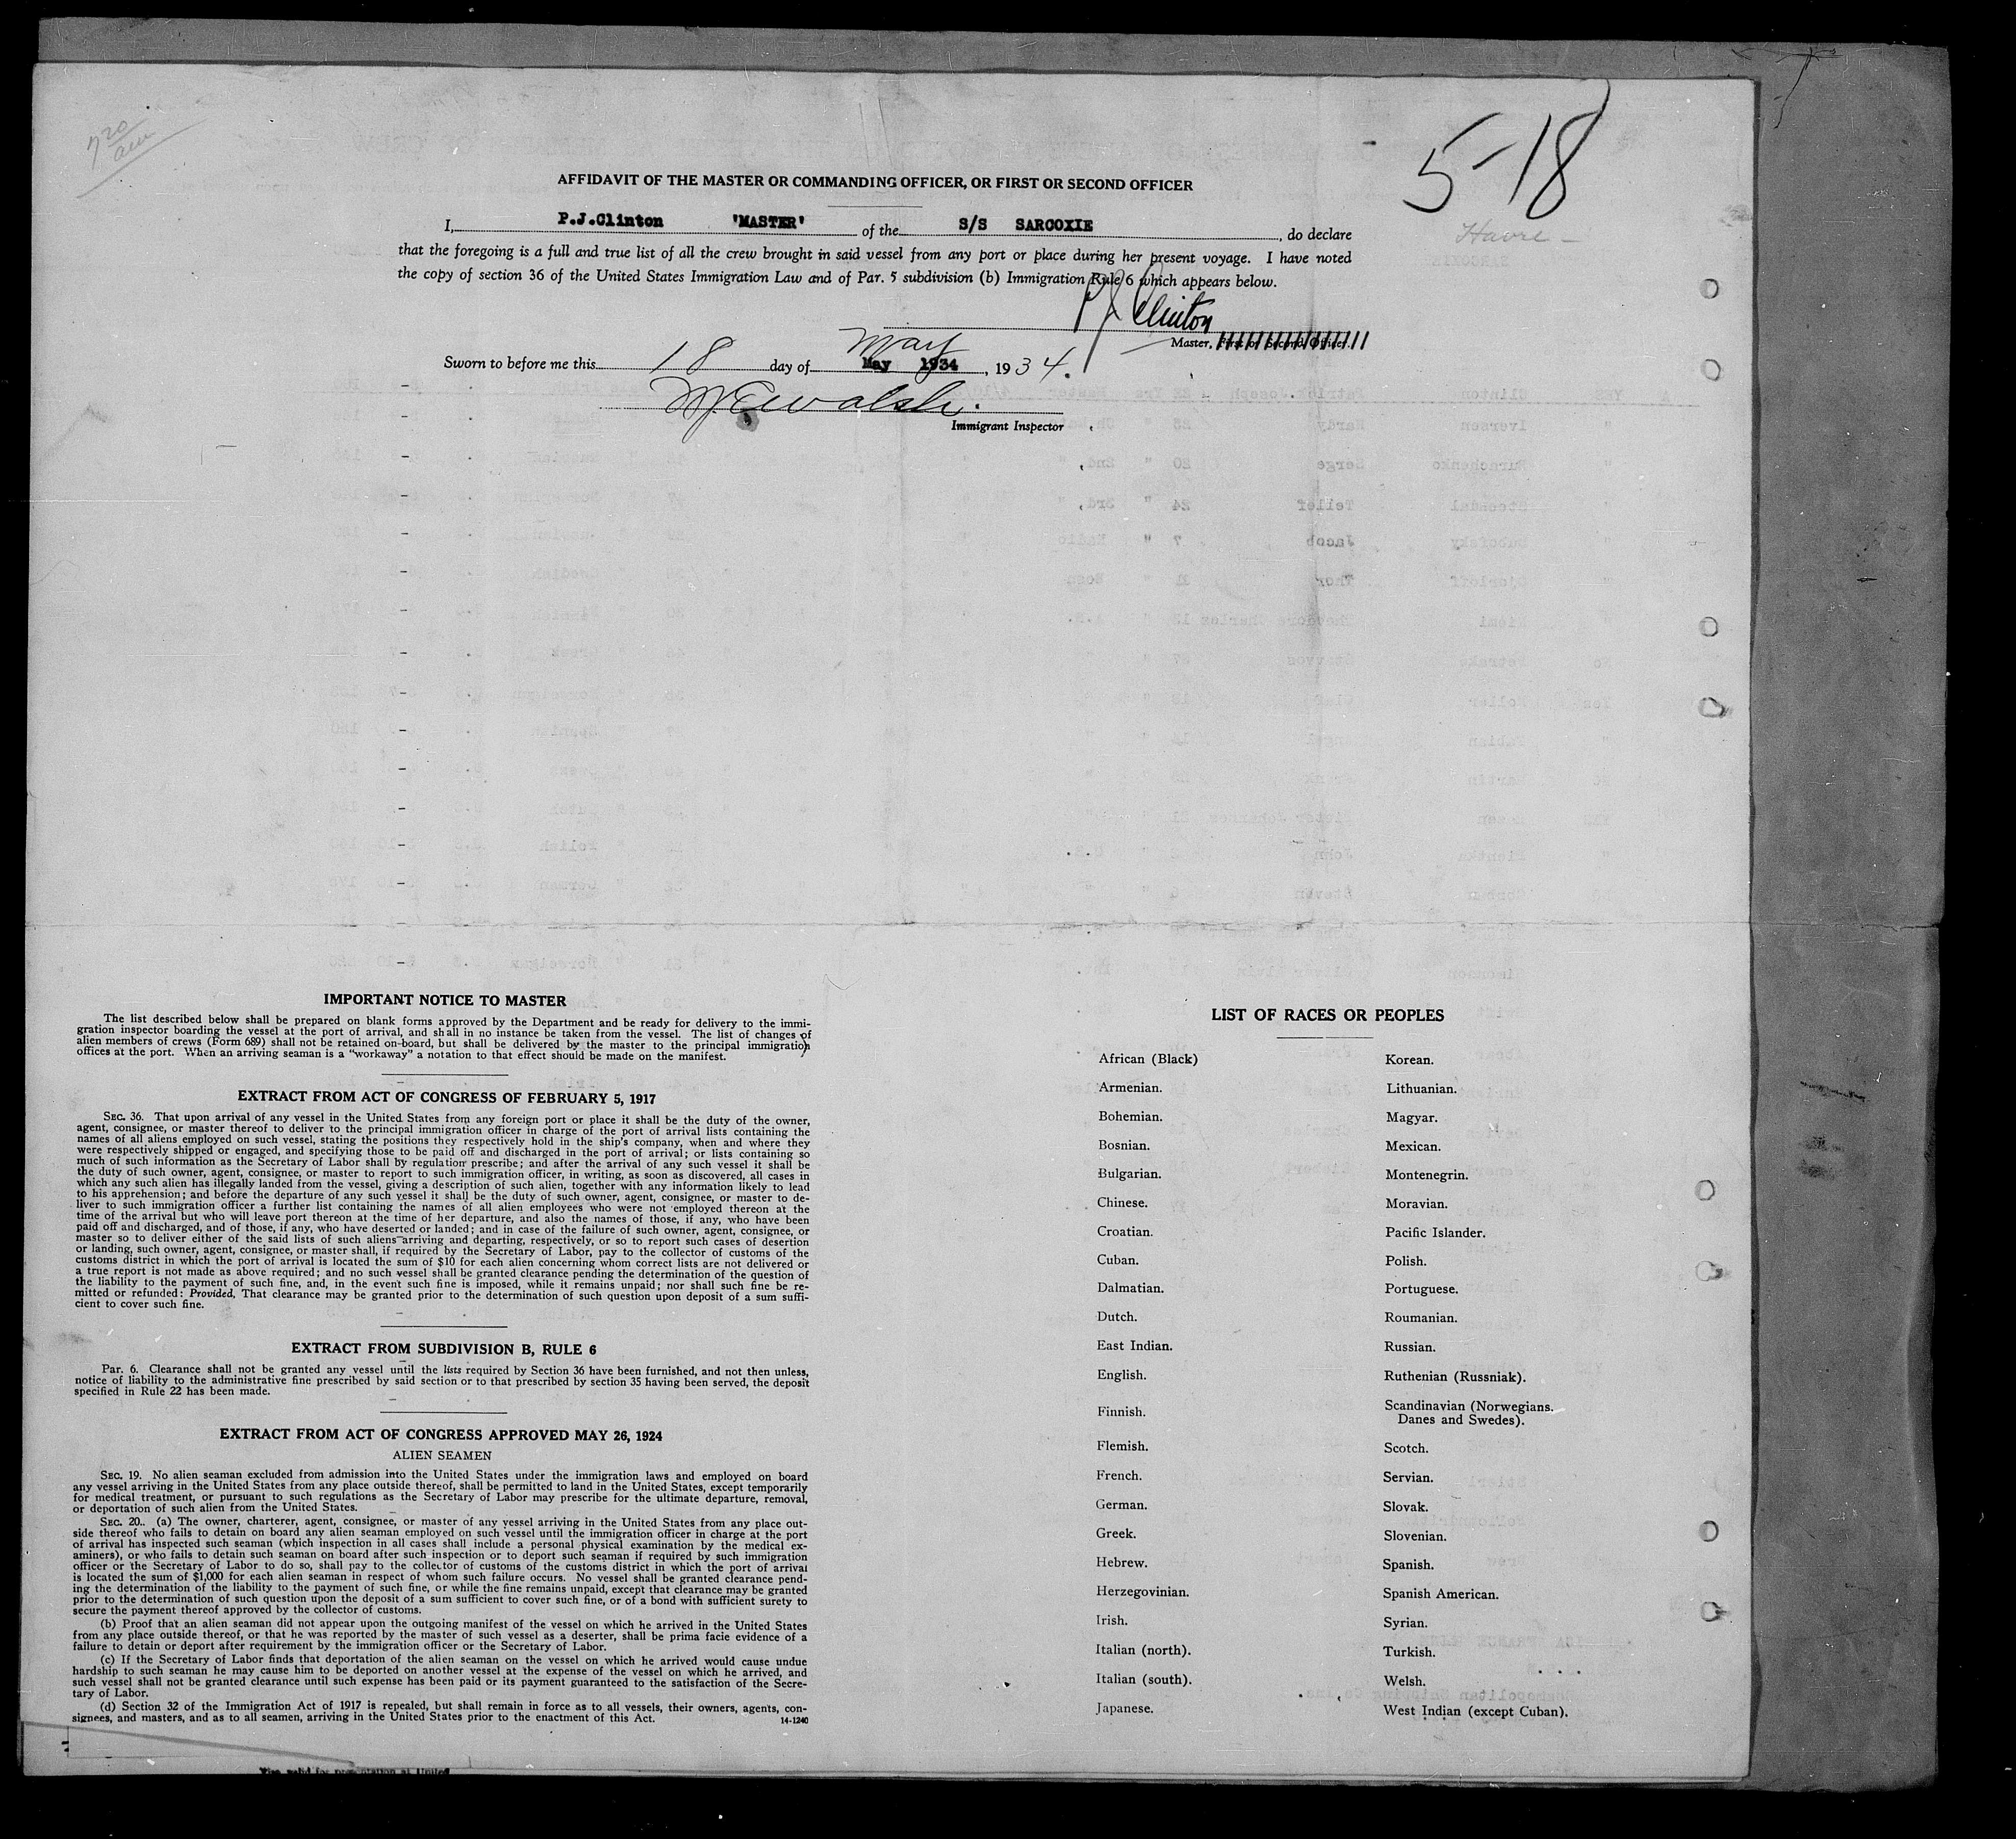 7 20 am
5-18
Havre -
AFFIDAVIT OF THE MASTER OR COMMANDING OFFICER, OR FIRST OR SECOND OFFICER
I, P.J.Clinton 'MASTER' of the S/S SARCOXIE, do declare
that the foregoing is a full and true list of all the crew brought in said vessel from any port or place during her present voyage. I have noted
the copy of section 36 of the United States Immigration Law and of Par. 5 subdivision (b) Immigration Rule 6 which appears below.
P J Clinton
Master, First or Second Officer.
Sworn to before me this 18 day of May May 1934, 1934.
Immigrant Inspector
IMPORTANT NOTICE TO MASTER
The list described below shall be prepared on blank forms approved by the Department and be ready for delivery to the immi-
gration inspector boarding the vessel at the port of arrival, and shall in no instance be taken from the vessel. The list of changes of
alien members of crews (Form 689) shall not be retained on-board, but shall be delivered by the master to the principal immigration
offices at the port. When an arriving seaman is a "workaway" a notation to that effect should be made on the manifest.
EXTRACT FROM ACT OF CONGRESS OF FEBRUARY 5, 1917
SEC. 36. That upon arrival of any vessel in the United States from any foreign port or place it shall be the duty of the owner,
agent, consignee, or master thereof to deliver to the principal immigration officer in charge of the port of arrival lists containing the
names of all aliens employed on such vessel, stating the positions they respectively hold in the ship's company, when and where they
were respectively shipped or engaged, and specifying those to be paid off and discharged in the port of arrival; or lists containing so
much of such information as the Secretary of Labor shall by regulation prescribe; and after the arrival of any such vessel it shall be
the duty of such owner, agent, consignee, or master to report to such immigration officer, in writing, as soon as discovered, all cases in
which any such alien has illegally landed from the vessel, giving a description of such alien, together with any information likely to lead
to his apprehension; and before the departure of any such vessel it shall be the duty of such owner, agent, consignee, or master to de-
liver to such immigration officer a further list containing the names of all alien employees who were not employed thereon at the
time of the arrival but who will leave port thereon at the time of her departure, and also the names of those, if any, who have been
paid off and discharged, and of those, if any, who have deserted or landed; and in case of the failure of such owner, agent, consignee, or
master so to deliver either of the said lists of such aliens arriving and departing, respectively, or so to report such cases of desertion
or landing, such owner, agent, consignee, or master shall, if required by the Secretary of Labor, pay to the collector of customs of the
customs district in which the port of arrival is located the sum of $10 for each alien concerning whom correct lists are not delivered or
a true report is not made as above required; and no such vessel shall be granted clearance pending the determination of the question of
the liability to the payment of such fine, and, in the event such fine is imposed, while it remains unpaid; nor shall such fine be re-
mitted or refunded: Provided, That clearance may be granted prior to the determination of such question upon deposit of a sum suffi-
cient to cover such fine.
EXTRACT FROM SUBDIVISION B, RULE 6
Par. 6. Clearance shall not be granted any vessel until the lists required by Section 36 have been furnished, and not then unless,
notice of liability to the administrative fine prescribed by said section or to that prescribed by section 35 having been served, the deposit
specified in Rule 22 has been made.
EXTRACT FROM ACT OF CONGRESS APPROVED MAY 26, 1924
ALIEN SEAMEN
SEC. 19. No alien seaman excluded from admission into the United States under the immigration laws and employed on board
any vessel arriving in the United States from any place outside thereof, shall be permitted to land in the United States, except temporarily
for medical treatment, or pursuant to such regulations as the Secretary of Labor may prescribe for the ultimate departure, removal,
or deportation of such alien from the United States.
SEC. 20.. (a) The owner, charterer, agent, consignee, or master of any vessel arriving in the United States from any place out-
side thereof who fails to detain on board any alien seaman employed on such vessel until the immigration officer in charge at the port
of arrival has inspected such seaman (which inspection in all cases shall include a personal physical examination by the medical ex-
aminers), or who fails to detain such seaman on board after such inspection or to deport such seaman if required by such immigration
officer or the Secretary of Labor to do so, shall pay to the collector of customs of the customs district in which the port of arrival
is located the sum of $1,000 for each alien seaman in respect of whom such failure occurs. No vessel shall be granted clearance pend-
ing the determination of the liability to the payment of such fine, or while the fine remains unpaid, except that clearance may be granted
prior to the determination of such question upon the deposit of a sum sufficient to cover such fine, or of a bond with sufficient surety to
secure the payment thereof approved by the collector of customs.
(b) Proof that an alien seaman did not appear upon the outgoing manifest of the vessel on which he arrived in the United States
from any place outside thereof, or that he was reported by the master of such vessel as a deserter, shall be prima facie evidence of a
failure to detain or deport after requirement by the immigration officer or the Secretary of Labor.
(c) If the Secretary of Labor finds that deportation of the alien seaman on the vessel on which he arrived would cause undue
hardship to such seaman he may cause him to be deported on another vessel at the expense of the vessel on which he arrived, and
such vessel shall not be granted clearance until such expense has been paid or its payment guaranteed to the satisfaction of the Secre-
tary of Labor.
(d) Section 32 of the Immigration Act of 1917 is repealed, but shall remain in force as to all vessels, their owners, agents, con-
signees, and masters, and as to all seamen, arriving in the United States prior to the enactment of this Act.
14-1240
LIST OF RACES OR PEOPLES
African (Black)
Armenian.
Bohemian.
Bosnian.
Bulgarian.
Chinese.
Croatian.
Cuban.
Dalmatian.
Dutch.
East Indian.
English.
Finnish.
Flemish.
French.
German.
Greek.
Hebrew.
Herzegovinian.
Irish.
Italian (north).
Italian (south).
Japanese.
Korean.
Lithuanian.
Magyar.
Mexican.
Montenegrin.
Moravian.
Pacific Islander.
Polish.
Portuguese.
Roumanian.
Russian.
Ruthenian (Russniak).
Scandinavian (Norwegians.
Danes and Swedes).
Scotch.
Servian.
Slovak.
Slovenian.
Spanish.
Spanish American.
Syrian.
Turkish.
Welsh.
West Indian (except Cuban).